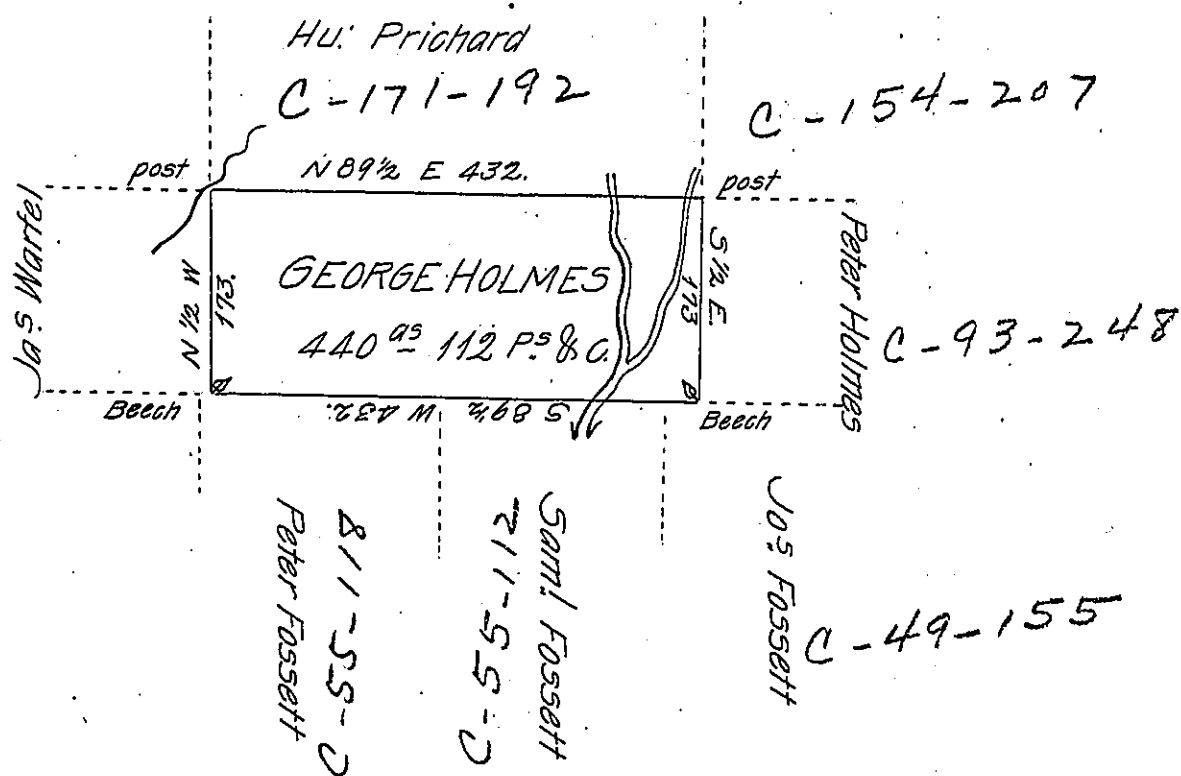 Hu: Prichard
C-171-192
C-154-207
post
N 89½ E 432.
post
Jas Warfel
N ½ W
173.
GEORGE HOLMES
440 as 112 Ps & C.
S ½ E.
173
Peter Holmes
C-93-248
Beech
S 89½ W 432.
Beech
Peter Fossett
C-55-118
C-55-112
Saml Fossett
Jos Fossett
C-49-155